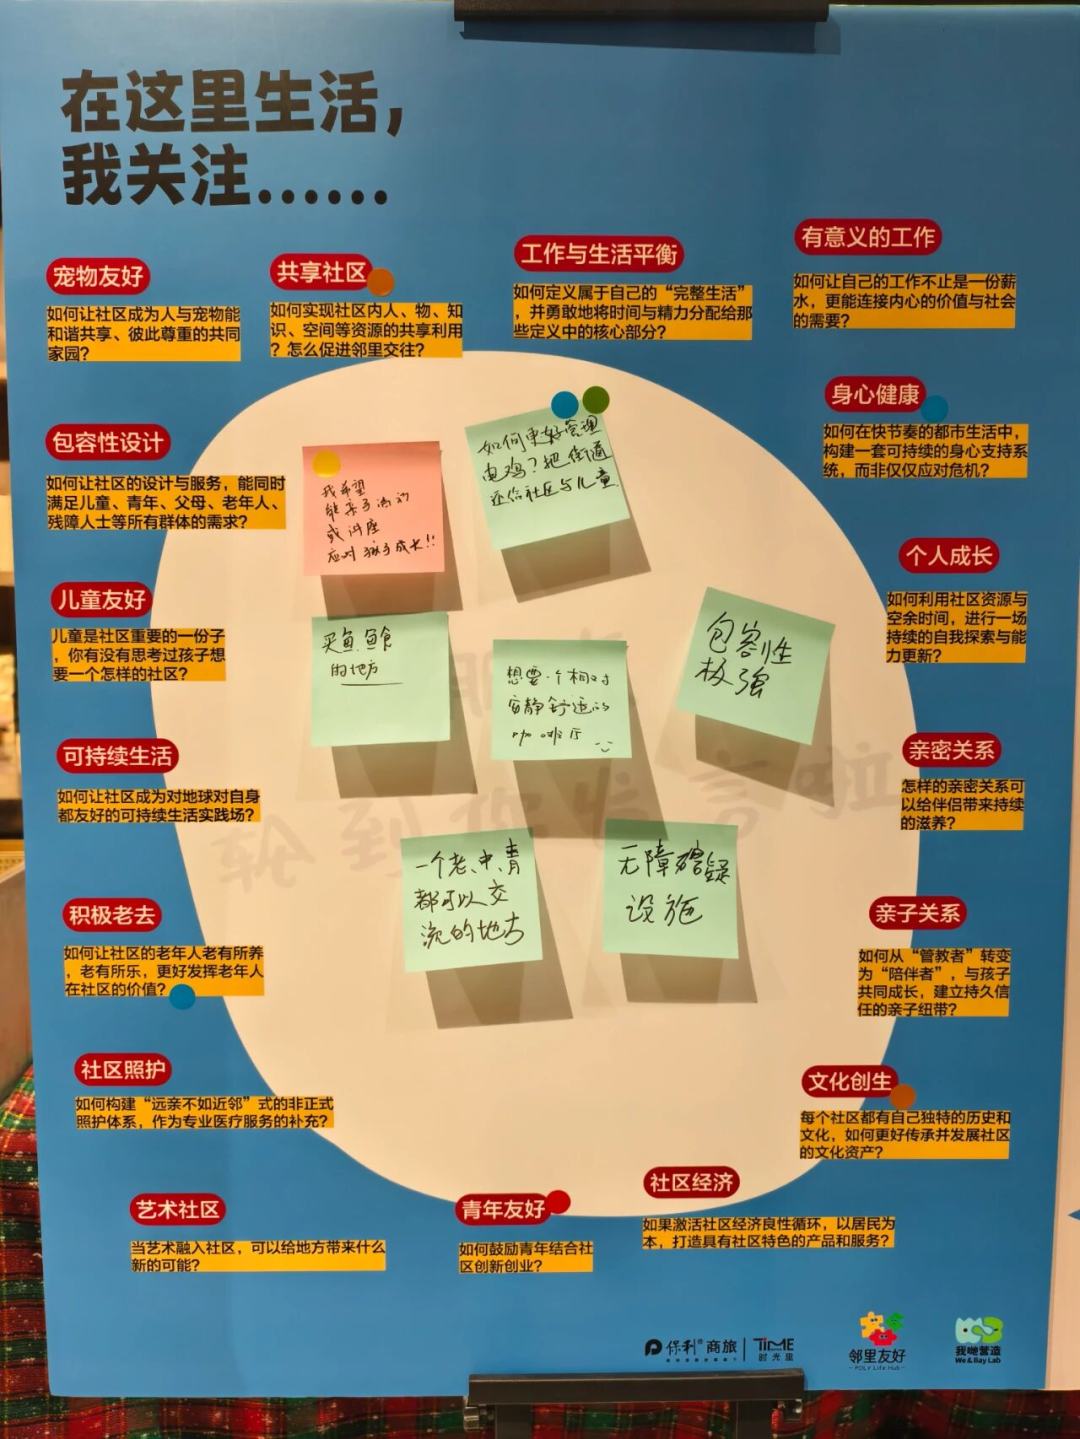 在这里生活，
我关注......
宠物友好
如何让社区成为人与宠物能
和谐共享、彼此尊重的共同
家园？
共享社区
如何实现社区内人、物、知
识、空间等资源的共享利用
？怎么促进邻里交往？
工作与生活平衡
如何定义属于自己的“完整生活”
，并勇敢地将时间与精力分配给那
些定义中的核心部分？
有意义的工作
如何让自己的工作不止是一份薪
水，更能连接内心的价值与社会
的需要？
身心健康
如何在快节奏的都市生活中，
构建一套可持续的身心支持系
统，而非仅仅应对危机？
包容性设计
如何让社区的设计与服务，能同时
满足儿童、青年、父母、老年人、
残障人士等所有群体的需求？
个人成长
如何利用社区资源与
空余时间，进行一场
持续的自我探索与能
力更新？
儿童友好
儿童是社区重要的一份子
，你有没有思考过孩子想
要一个怎样的社区？
可持续生活
如何让社区成为对地球对自身
都友好的可持续生活实践场？
亲密关系
怎样的亲密关系可
以给伴侣带来持续
的滋养？
积极老去
如何让社区的老年人老有所养
，老有所乐，更好发挥老年人
在社区的价值？
亲子关系
如何从“管教者”转变
为“陪伴者”，与孩子
共同成长，建立持久信
任的亲子纽带？
社区照护
如何构建“远亲不如近邻”式的非正式
照护体系，作为专业医疗服务的补充？
文化创生
每个社区都有自己独特的历史和
文化，如何更好传承并发展社区
的文化资产？
艺术社区
当艺术融入社区，可以给地方带来什么
新的可能？
青年友好
如何鼓励青年结合社
区创新创业？
社区经济
如果激活社区经济良性循环，以居民为
本，打造具有社区特色的产品和服务？
我希望
能亲子活动
或讲座
应对孩子成长!!
如何更好管理
电鸡？把街道
还给社区与儿童.
买鱼
的地方
想要一个相对
安静舒适的
咖啡厅
包容性
极强
一个老、中、青
都可以交
流的地方
无障碍
设施
轮到你发言啦
保利®商旅
TIME
时光里
邻里友好
POLY Life Hub
我哋营造
We & Bay Lab